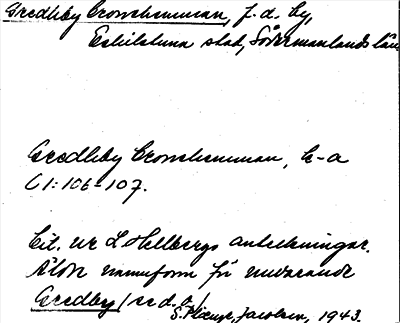 Gredhby Cronehemman, f.d. by,
Eskilstuna stad, Södermanlands län
Gredhby Cronehemman, E-a
C I:106-107.
Cit. ur L Hellbergs anteckningar.
Äldre namnform för nuvarande
Gredby (se d.o.)
S. Jacobson, 1943.